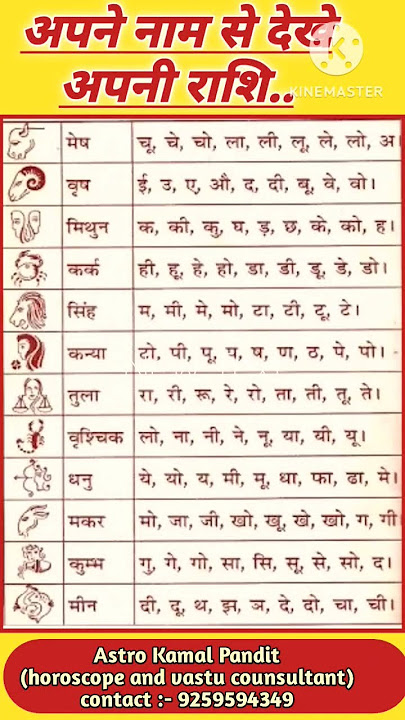 अपने नाम से देखे
अपनी राशि..
KINEMASTER
मेष चू, चे, चो, ला, ली, लू, ले, लो, अ।
वृष ई, उ, ए, औ, द, दी, बू, वे, वो।
मिथुन क, की, कु, घ, ड़, छ, के, को, ह।
कर्क ही, हू, हे, हो, डा, डी, डू, डे, डो।
सिंह म, मी, मे, मो, टा, टी, टू, टे।
कन्या टो, पी, पू, प, ष, ण, ठ, पे, पो।
तुला रा, री, रू, रे, रो, ता, ती, तू, ते।
वृश्चिक लो, ना, नी, ने, नू, या, यी, यू।
धनु ये, यो, य, मी, मू, धा, फा, ढा, मे।
मकर मो, जा, जी, खो, खू, खे, खो, ग, गी
कुम्भ गु, गे, गो, सा, सि, सू, से, सो, द।
मीन दी, दू, थ, झ, ञ, दे, दो, चा, ची।
Astro Kamal Pandit
(horoscope and vastu counsultant)
contact :- 9259594349